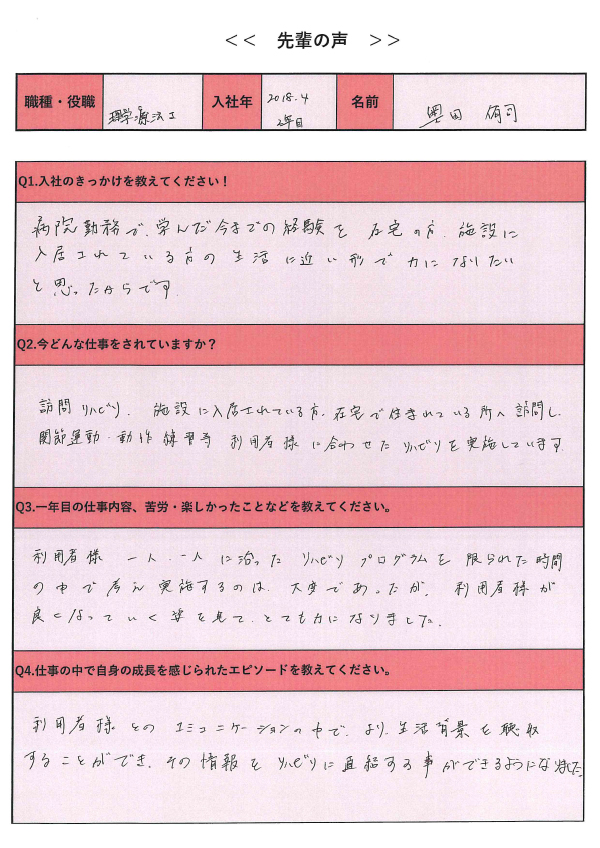 ＜＜　先輩の声　＞＞
職種・役職　理学療法士　入社年　2018.4　2年目　名前　奥田 侑司
Q1.入社のきっかけを教えてください！
病院勤務で、学んだ今までの経験を 在宅の方、施設に
入居されている方の生活に近い形で力になりたい
と思ったからです
Q2.今どんな仕事をされていますか？
訪問リハビリ、施設に入居されている方、在宅で住まれている所へ訪問し、
関節運動・動作練習等 利用者様に合わせたリハビリを実施しています
Q3.一年目の仕事内容、苦労・楽しかったことなどを教えてください。
利用者様 一人、一人に沿ったリハビリプログラムを限られた時間
の中で考え実施するのは、大変であったが、利用者様が
良くなっていく姿を見て、とても力になりました。
Q4.仕事の中で自身の成長を感じられたエピソードを教えてください。
利用者様とのコミュニケーションの中で、より、生活背景を聴収
することができ、その情報をリハビリに直結する事ができるようになりました